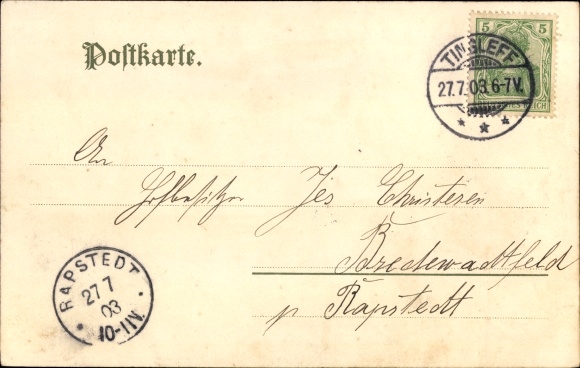 Postkarte.
5 5
TINGLEFF
27.7.03.6-7V.
An
Hofbesitzer Jes Christensen
Bredewadtfeld
p Rapstedt
RAPSTEDT
27 7
03
10-11V.